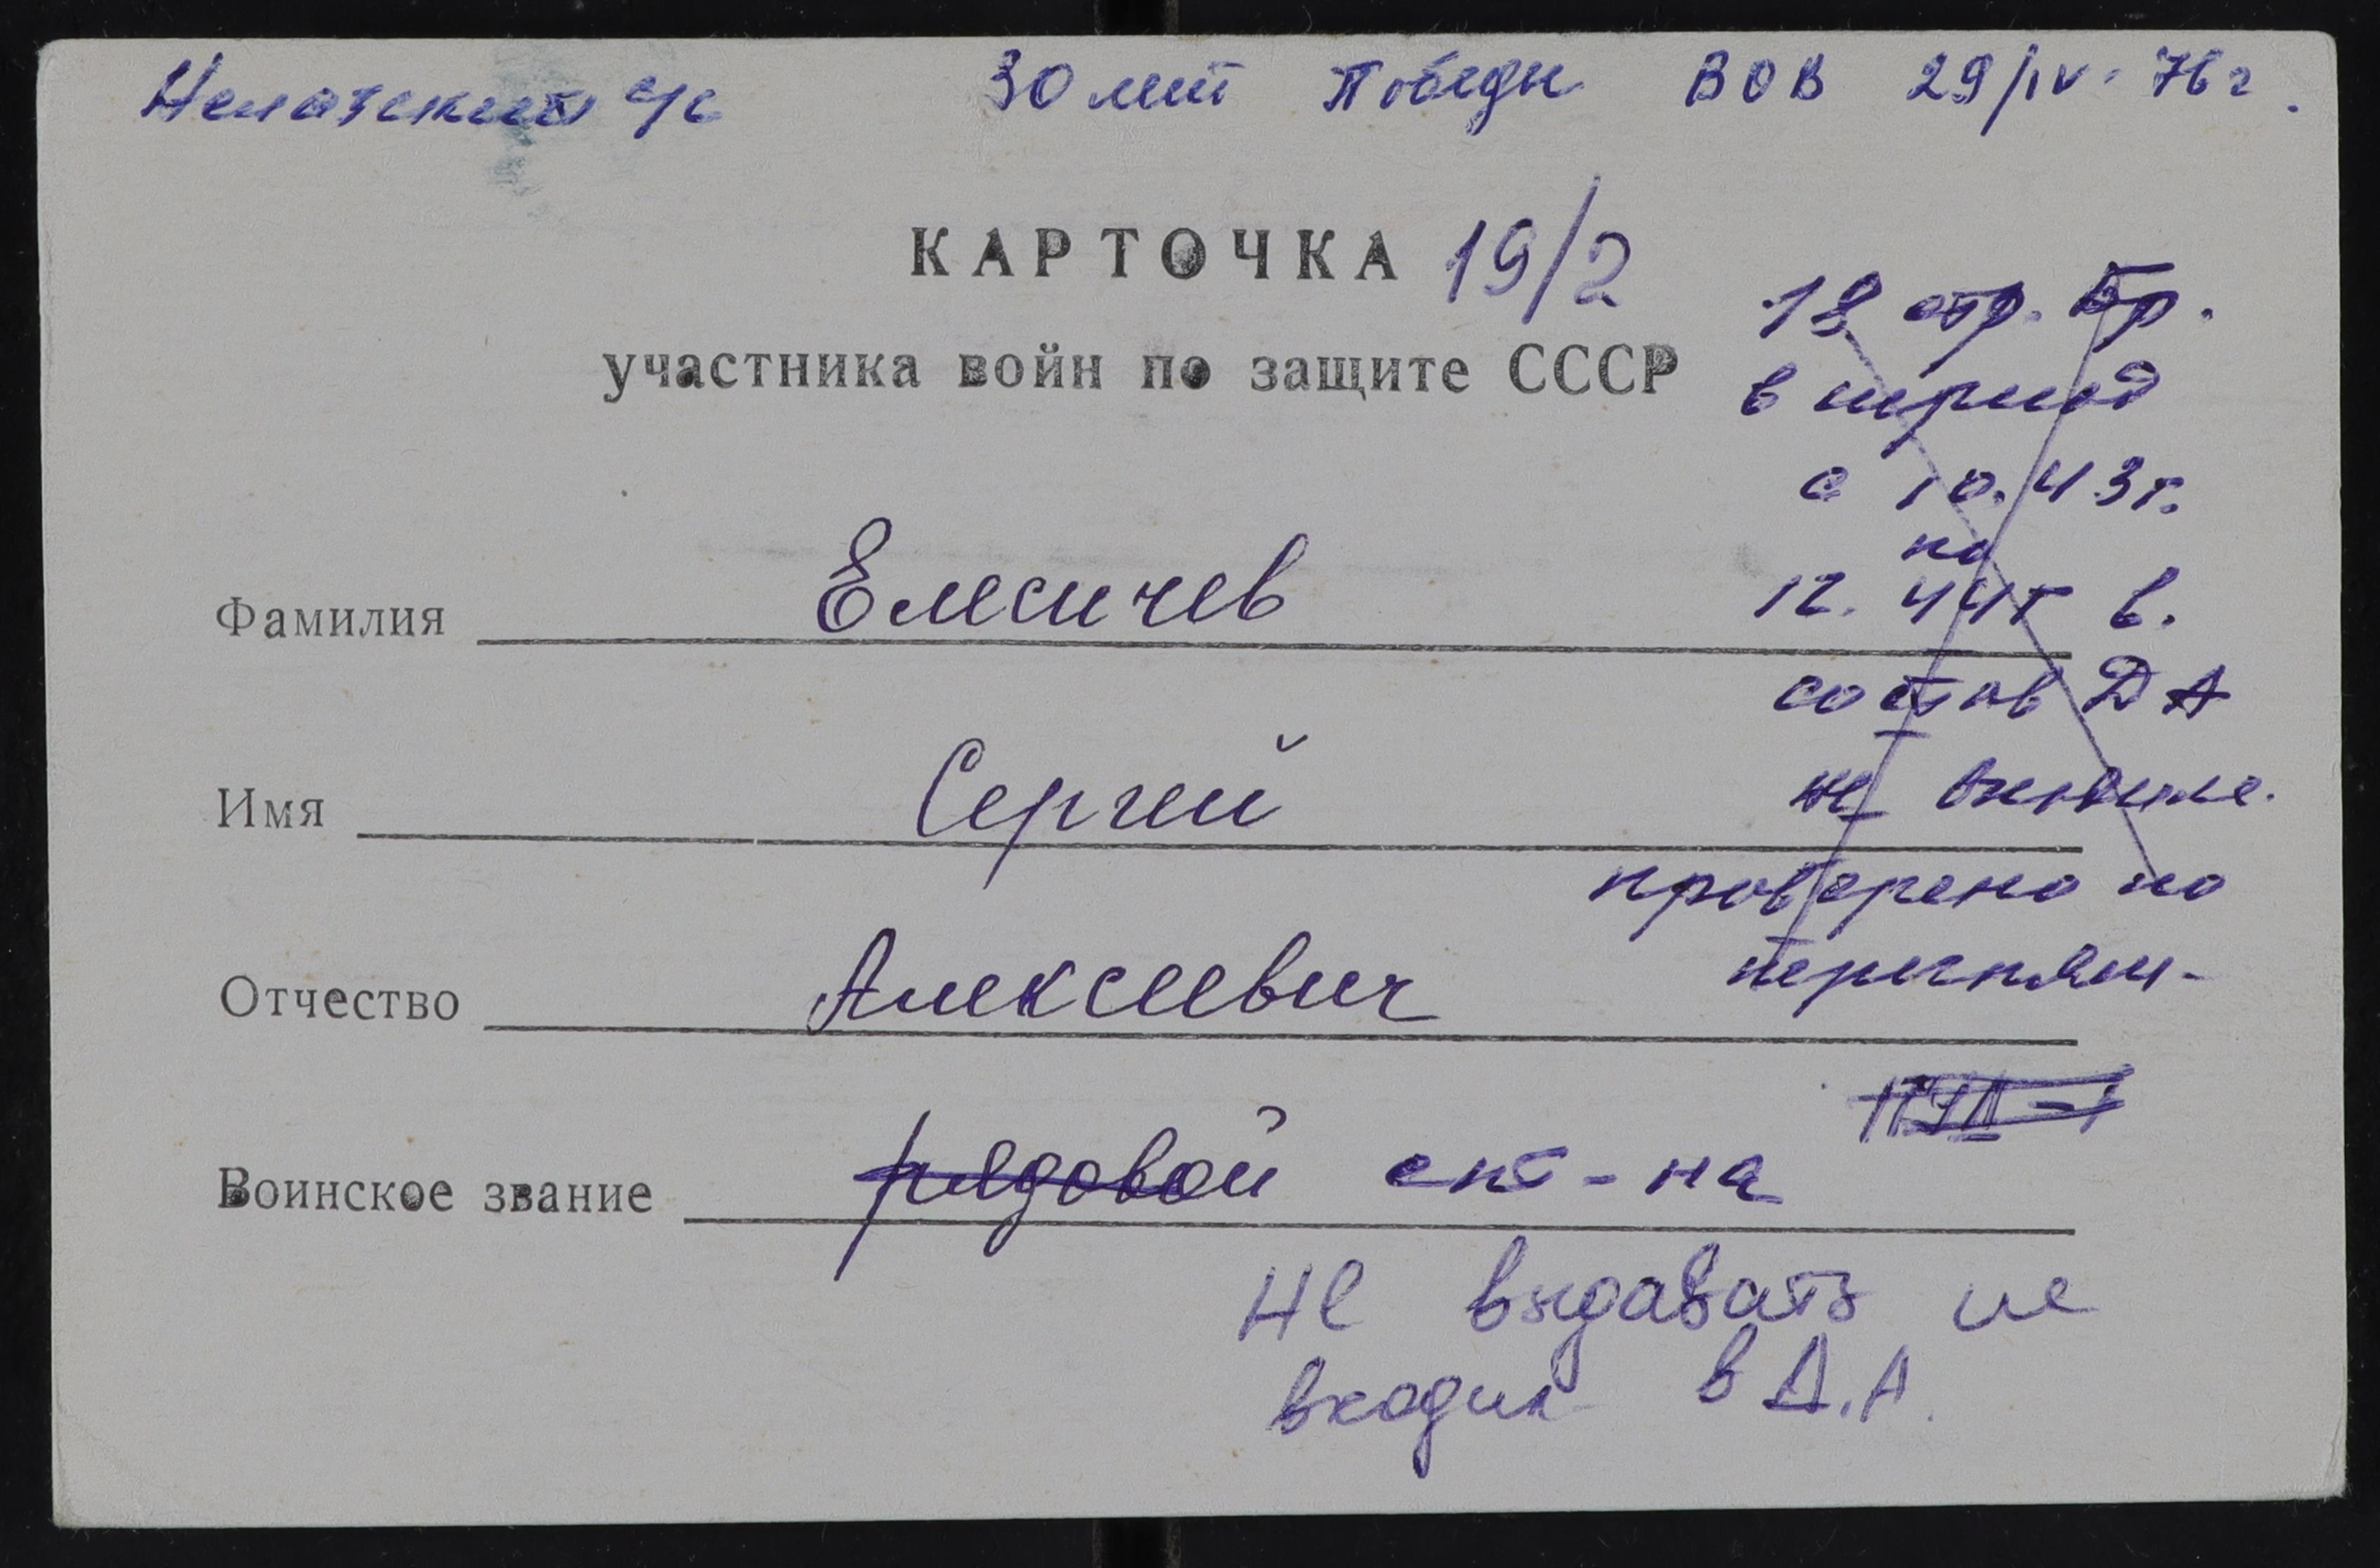 Нелазский с/с 30 лет Победы ВОВ 29/IV-76 г.
КАРТОЧКА 19/2
участника войн по защите СССР
18 стр. бр.
в период
с 10.43г.
по
12.44г в.
состав ДА
не входила.
проверено по
перечням-
Фамилия Елесичев
Имя Сергей
Отчество Алексеевич
Воинское звание рядовой с-на
не выдавать не
входил в Д.А.